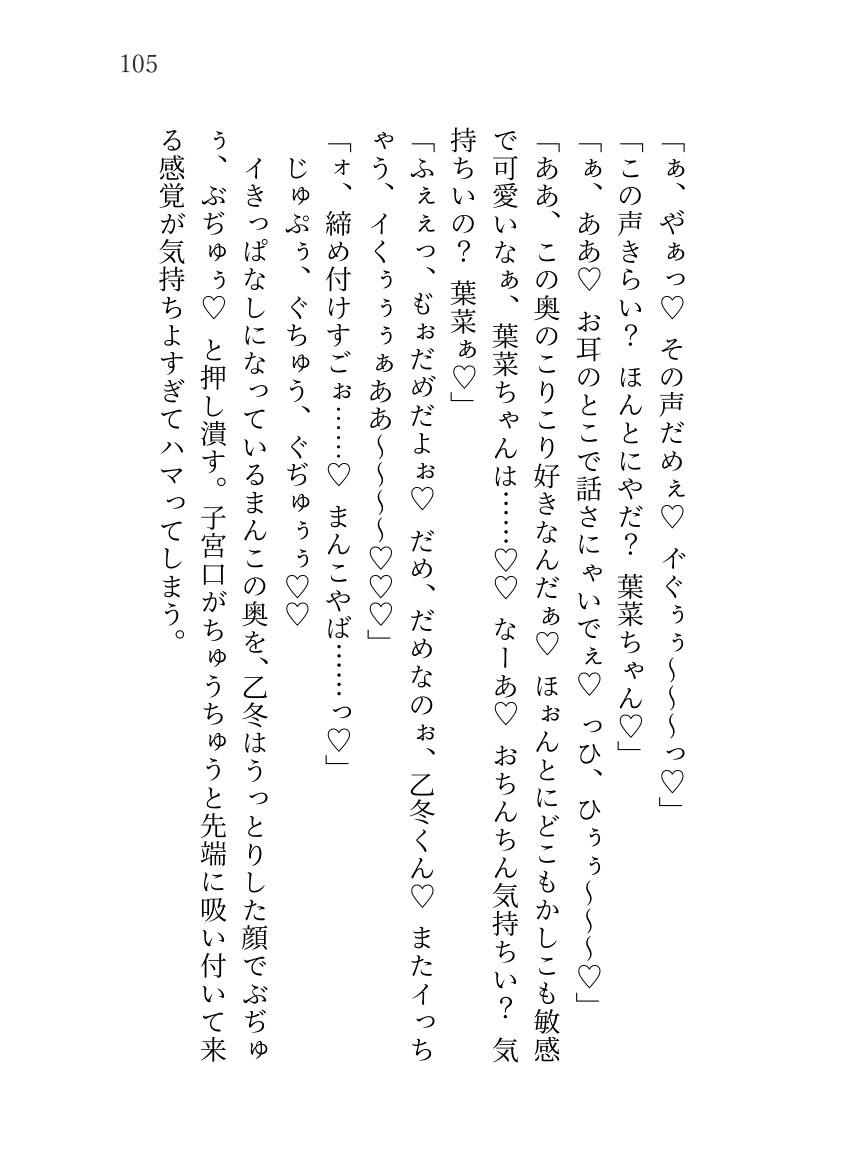 105
「ぁ、や゛ぁっ♡ その声だめぇ♡ イ゛ぐぅぅ～～～っ♡」
「この声きらい？ ほんとにやだ？ 葉菜ちゃん♡」
「ぁ、ああ♡ お耳のとこで話さにゃいでぇ♡ っひ、ひぅぅ～～～♡」
「ああ、この奥のこりこり好きなんだぁ♡ ほぉんとにどこもかしこも敏感
で可愛いなぁ、葉菜ちゃんは……♡♡ なーあ♡ おちんちん気持ちい？ 気
持ちいの？ 葉菜ぁ♡」
「ふぇぇっ、も゛ぉだめ゛だよぉ♡ だめ、だめなのぉ、乙冬くん♡ またイっち
ゃう、イくぅぅぅぁああ～～～～♡♡♡」
「ォ、締め付けすごぉ……♡ まんこやば……っ♡」
じゅぷぅ、ぐちゅう、ぐぢゅぅぅ♡♡
イきっぱなしになっているまんこの奥を、乙冬はうっとりした顔でぶぢゅ
ぅ、ぶぢゅぅ♡ と押し潰す。子宮口がちゅうちゅうと先端に吸い付いて来
る感覚が気持ちよすぎてハマってしまう。